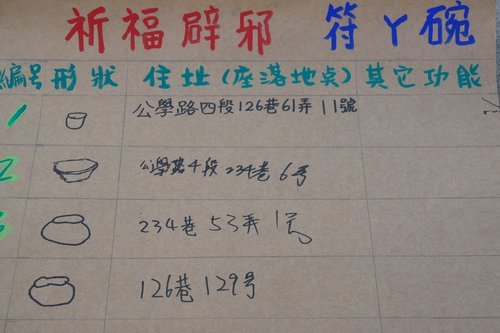 祈福辟邪 符ㄚ碗
編号 形狀 住址(座落地桌) 其它功能
1 公學路四段126巷61弄11號
2 公學路4段234巷6号
3 234巷53弄1号
126巷129号